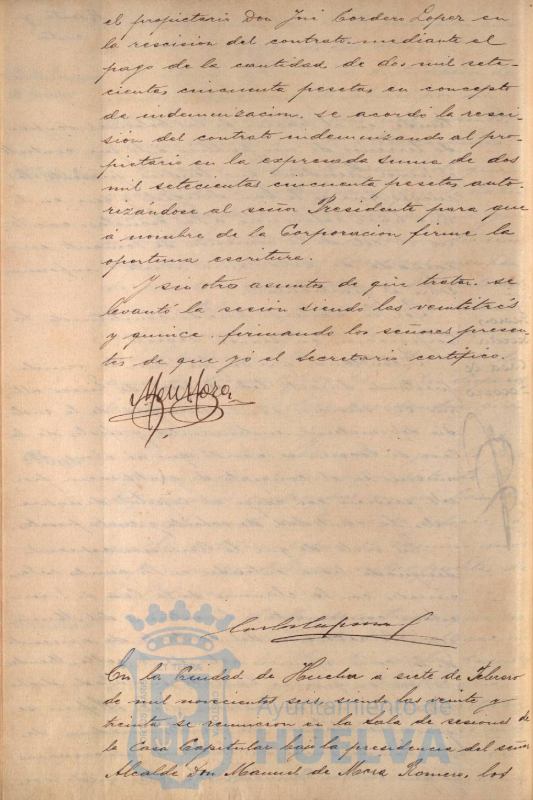 el propietario Don José Cordero Lopez en
la rescision del contrato, mediante el
pago de la cantidad de dos mil sete-
cientas cincuenta pesetas en concepto
de indemnizacion, se acordó la resci-
sión del contrato indemnizando al pro-
pietario en la expresada suma de dos
mil setecientas cincuenta pesetas auto-
rizándose al señor Presidente para que
á nombre de la Corporacion firme la
oportuna escritura.
Y sin otros asuntos de que tratar, se
levantó la sesión siendo las veintitrés
y quince, firmando los señores presen-
tes de que yó el Secretario certifico.
En la Ciudad de Huelva á siete de Febrero
de mil novecientos siendo las veinte y
treinta se reunieron en la Sala de sesiones de
la Casa Capitular bajo la presidencia del señor
Alcalde Don Manuel de Mora Romero, los
Ayuntamiento de
HUELVA